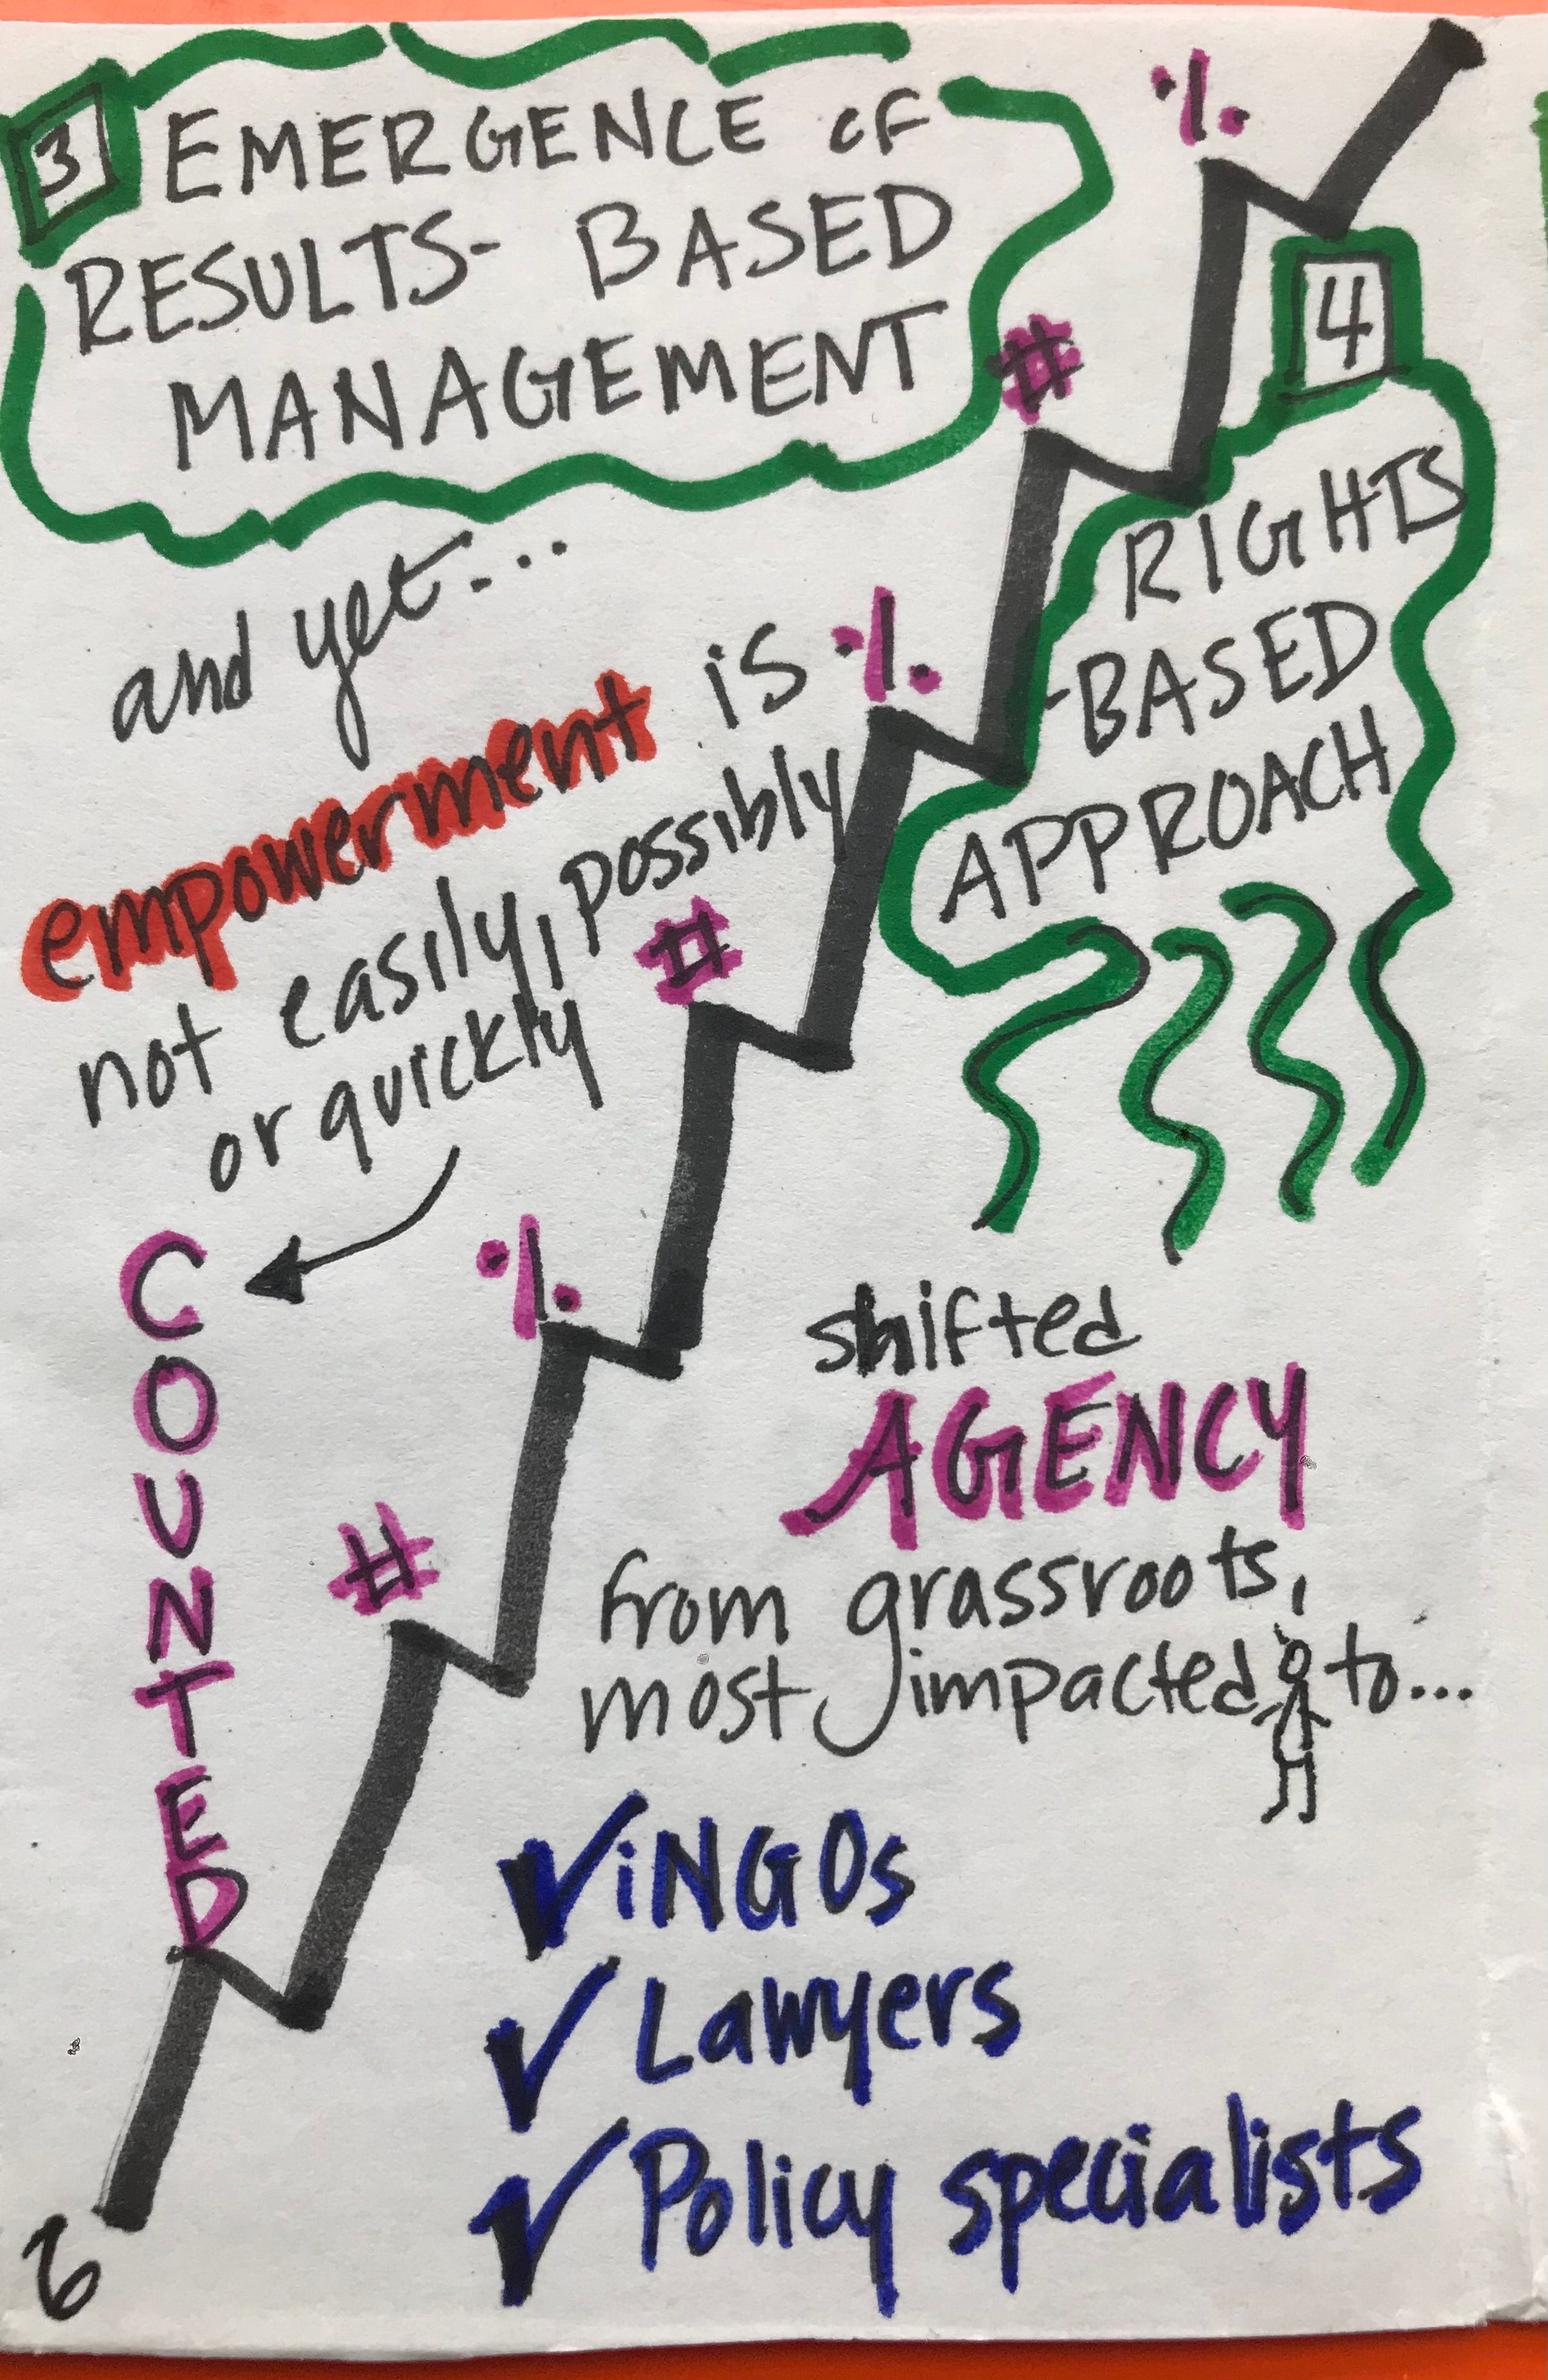 3 EMERGENCE OF
RESULTS-BASED
MANAGEMENT
and yet...
empowerment is
not easily, possibly
or quickly
COUNTED
# % # % # %
4
RIGHTS
-BASED
APPROACH
shifted
AGENCY
from grassroots,
most impacted to...
✓ iNGOs
✓ Lawyers
✓ Policy specialists
6